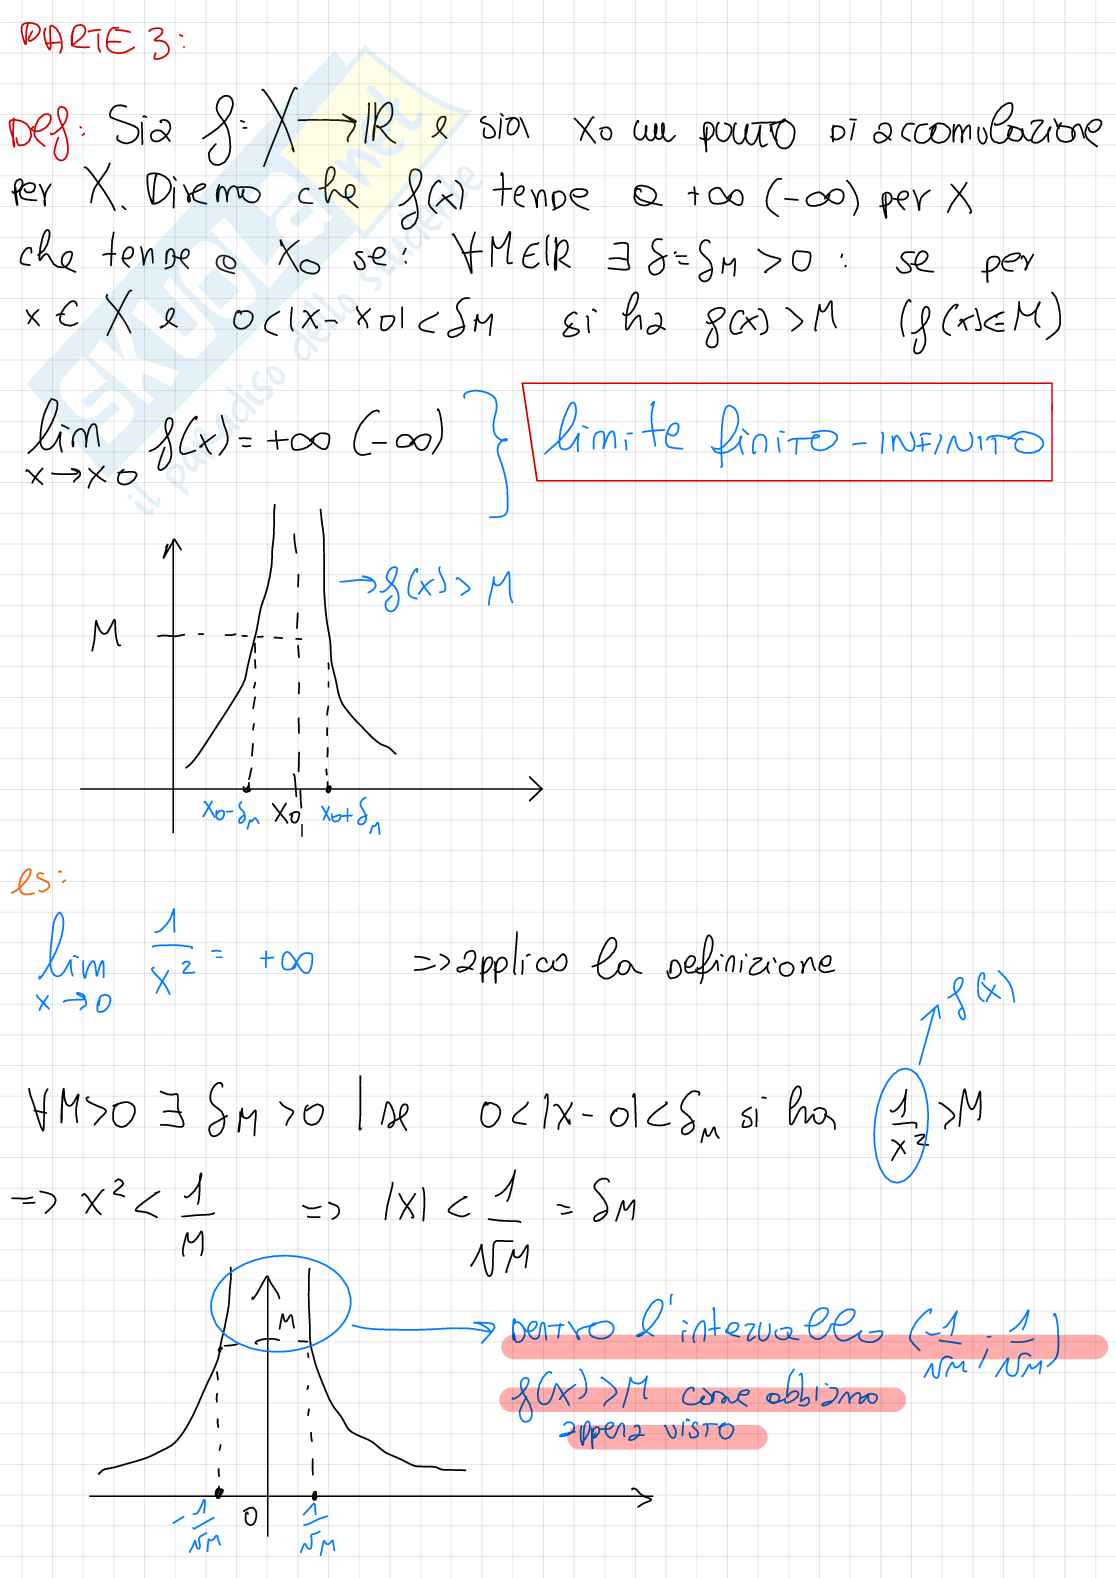 PARTE 3:
Def: Sia f: X → ℝ e sia x₀ un punto di accomulazione
per X. Diremo che f(x) tende a +∞ (-∞) per x
che tende a x₀ se: ∀M∈ℝ ∃ δ=δ_M >0 : se per
x ∈ X e 0<|x-x₀|<δ_M si ha f(x)>M (f(x)<M)
lim x→x₀ f(x)=+∞ (-∞) } limite finito - INFINITO
→f(x)>M
M
x₀-δ_M x₀ x₀+δ_M
es:
lim x→0 1/x² = +∞ => applico la definizione
f(x)
∀M>0 ∃ δ_M>0 | se 0<|x-0|<δ_M si ha 1/x² >M
=> x² < 1/M => |x| < 1/√M = δ_M
M
→ Dentro l'intervallo (-1/√M ; 1/√M)
f(x)>M come abbiamo
appena visto
-1/√M 0 1/√M
SKUOLA.net
il paradiso dello studente